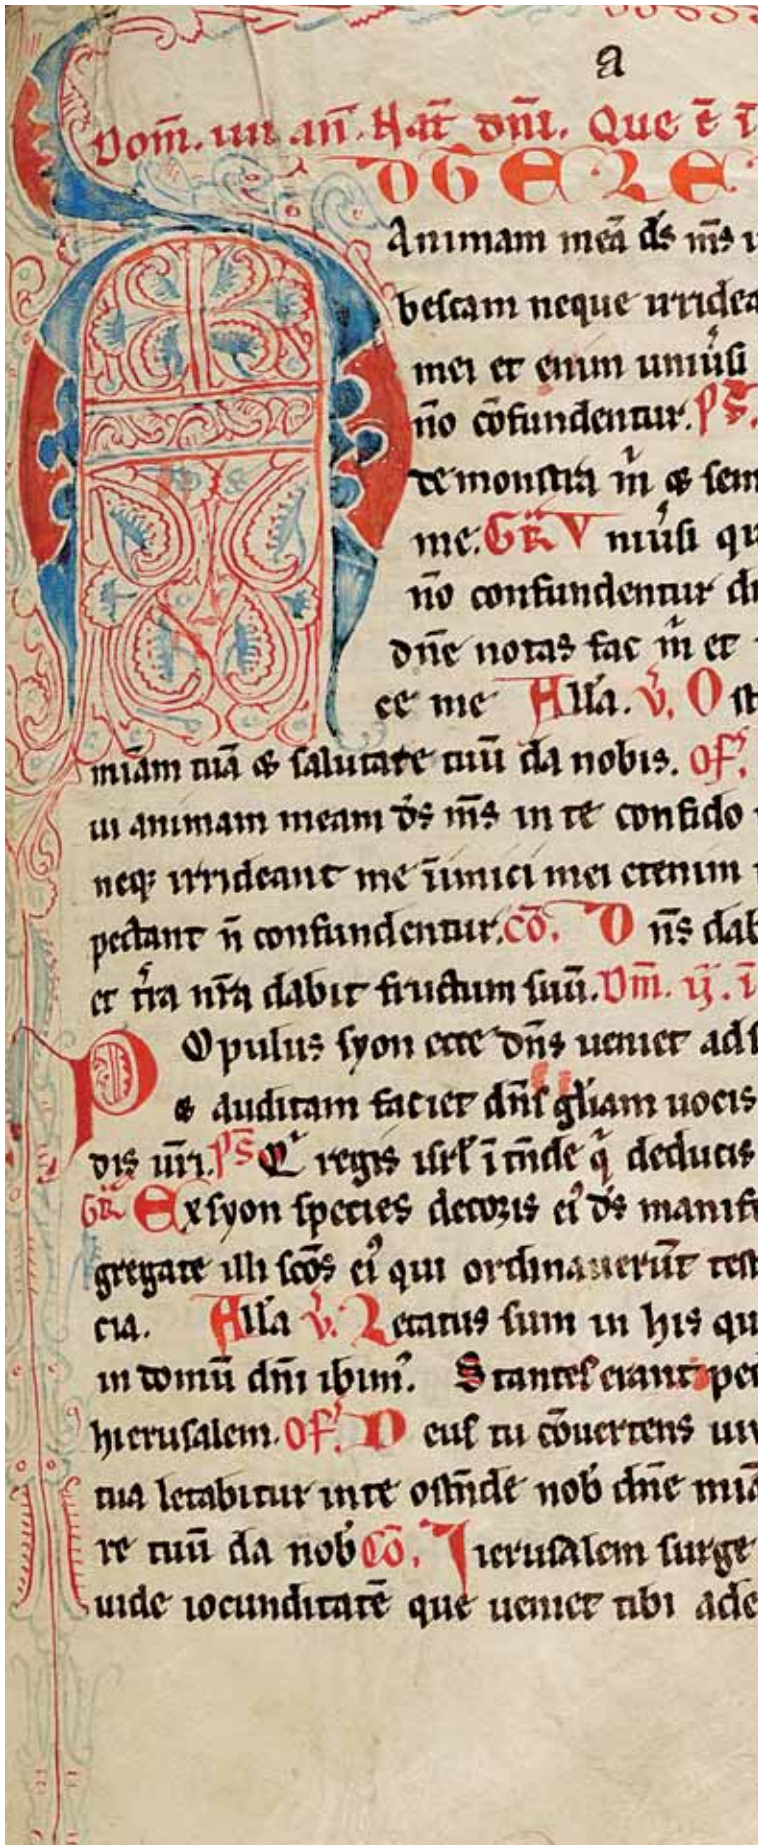 a
Dom̄. iııı an̄. Nat̄ dñi. Que ē ī
D TE LE
Animam meā ds m̄s
bescam neque irridea
mei et enim uniūsi
n̄o cōfundentur. Ps̄.
demonstra m̄ & sem
me. Gr̄ Vniūsi qu
n̄o confundentur
dn̄e notas fac m̄ et
ce me All'a. v̄. Ost
miam tuā & salutare tuū da nobis. of̄.
ui animam meam ds m̄s in te confido
neq; irrideant me īimici mei etenim
pectant n̄ confundentur. Cō. Dn̄s dab
et t̄ra nr̄a dabit fructum suū. Dm̄. ij. ī
POpulus syon ecce dn̄s ueniet ad s
& auditam faciet dn̄s gl̄iam uocis
dis ūri. Ps̄ Q' regis isr̄l ītn̄de q̄ deducis
Gr̄ Ex syon species decoris ei' ds manife
gregate illi sc̄os ei' qui ordinauerūt test
cia. All'a v̄. Letatus sum in his qu
in domū dn̄i ibim'. Stantes erant ped
hierusalem. of̄. Deus tu cōuertens uiu
tua letabitur in te ostn̄de nob̄ dn̄e miā
re tuū da nob̄ Cō. Jierusalem surge
uide iocunditatē que ueniet tibi a deo